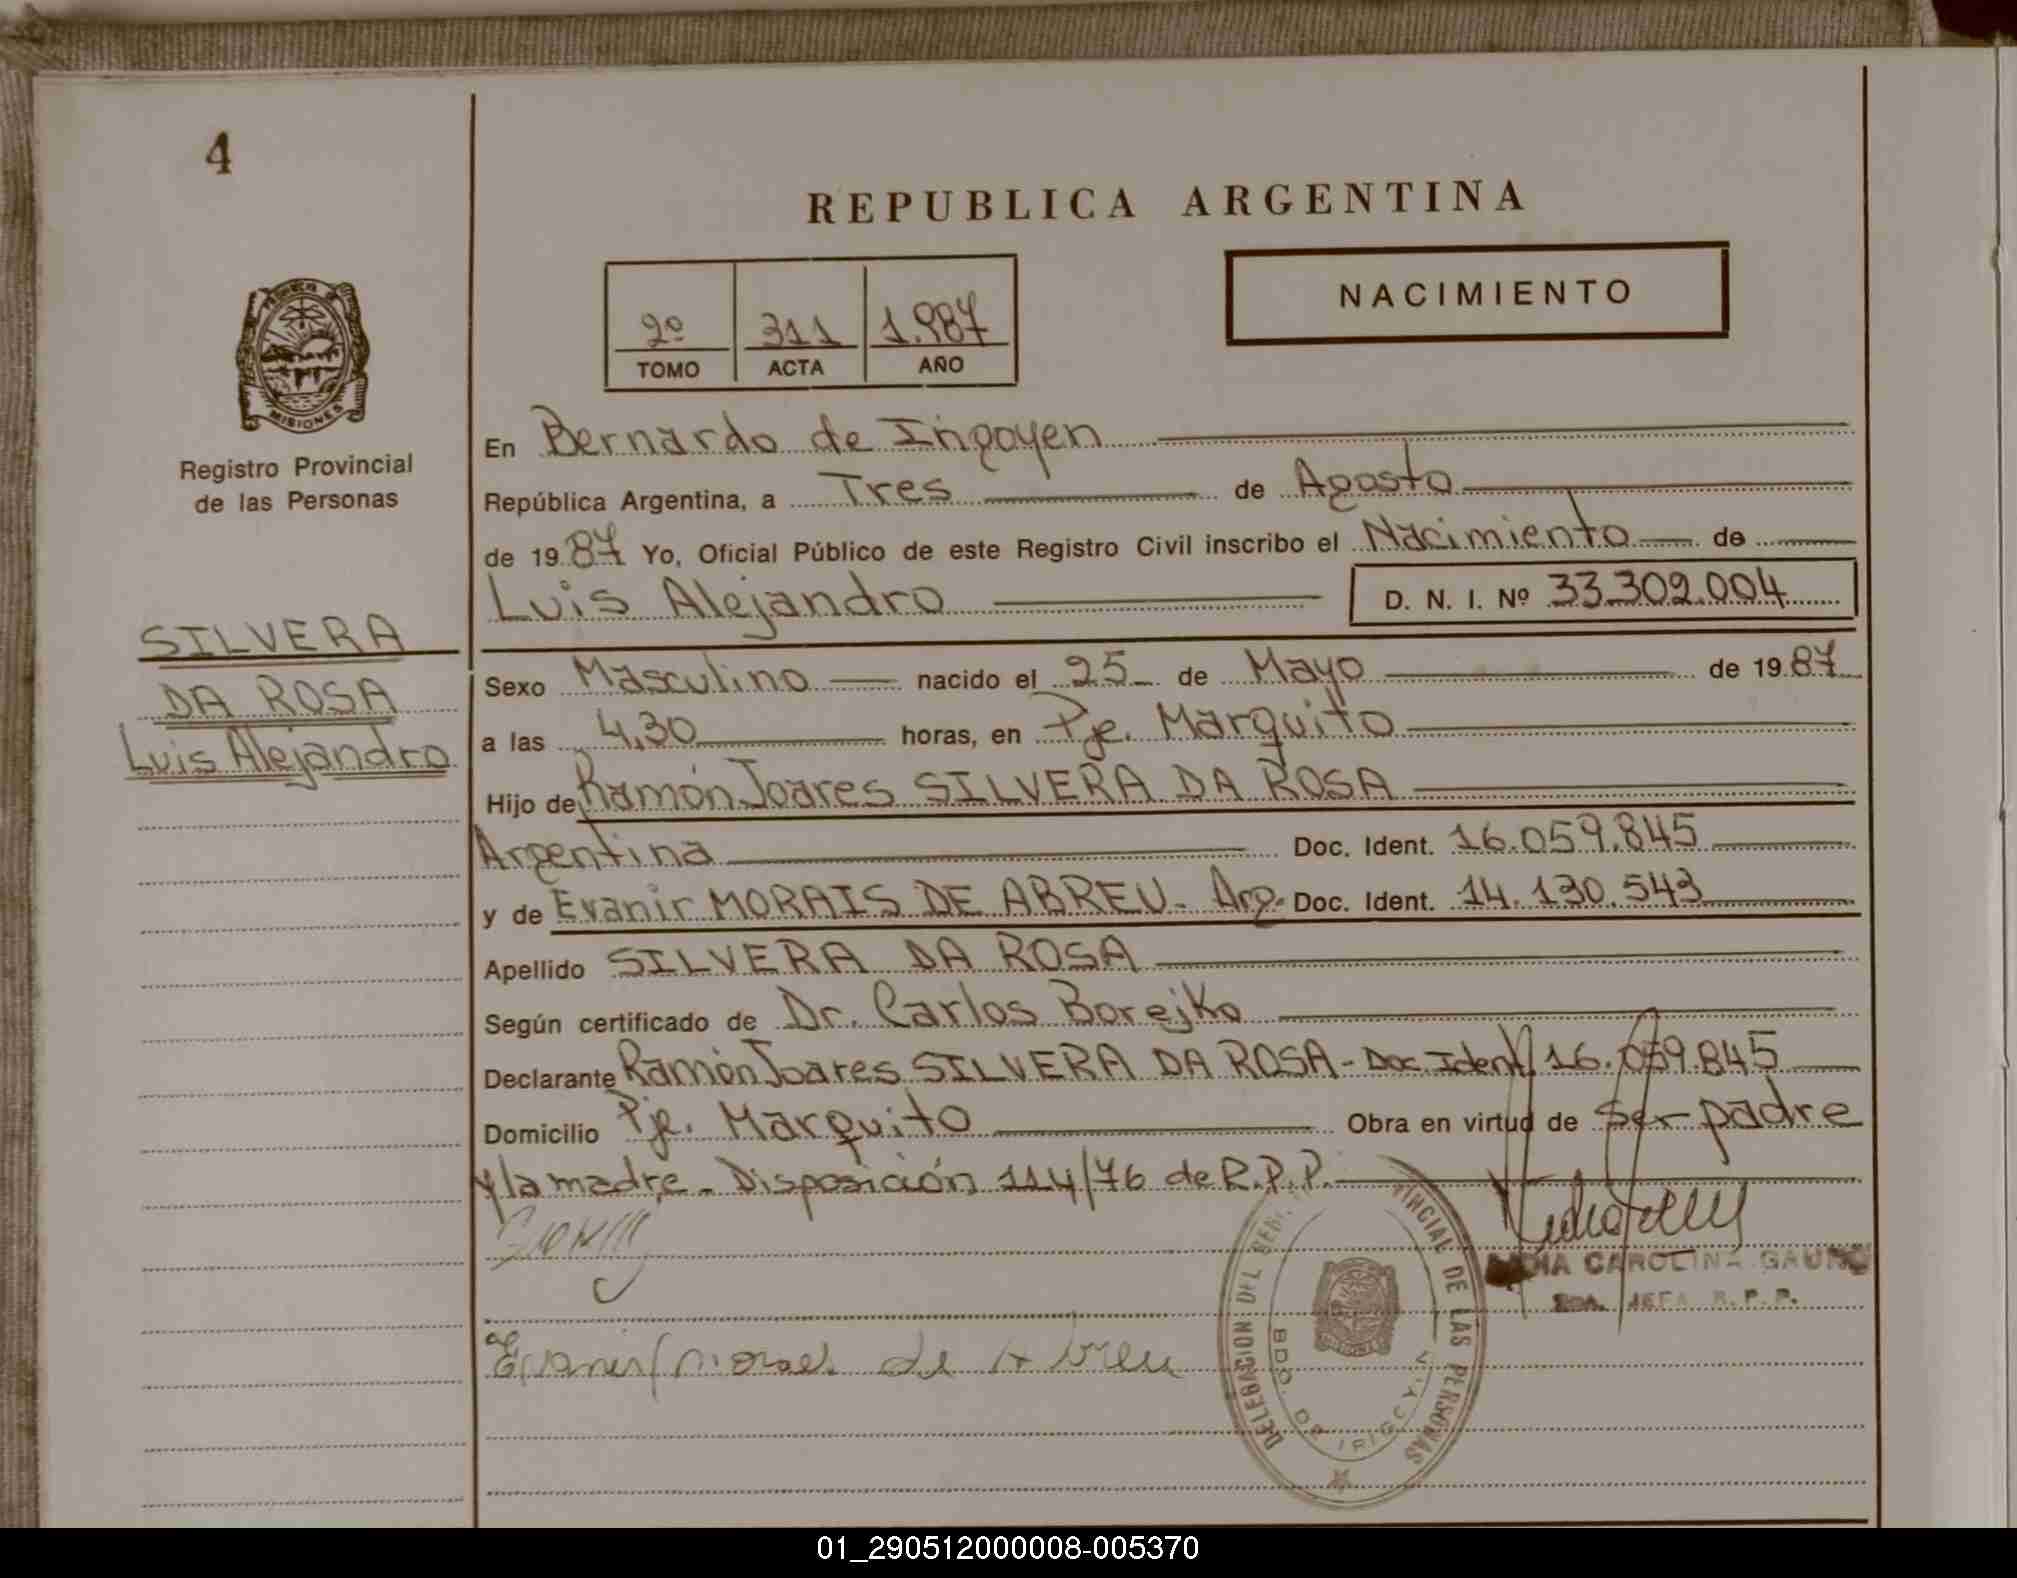 4
REPUBLICA ARGENTINA
NACIMIENTO
2º 311 1.987
TOMO ACTA AÑO
MISIONES
Registro Provincial
de las Personas
SILVERA
DA ROSA
Luis Alejandro
En Bernardo de Irigoyen
República Argentina, a Tres de Agosto
de 1987 Yo, Oficial Público de este Registro Civil inscribo el Nacimiento de
Luis Alejandro D. N. I. Nº 33.302.004
Sexo Masculino nacido el 25 de Mayo de 1987
a las 4,30 horas, en Pje. Marquito
Hijo de Ramón Joares SILVERA DA ROSA
Argentina Doc. Ident. 16.059.845
y de Evanir MORAIS DE ABREU - Arg. Doc. Ident. 14.130.543
Apellido SILVERA DA ROSA
Según certificado de Dr. Carlos Borejko
Declarante Ramón Joares SILVERA DA ROSA - Doc Ident 16.059.845
Domicilio Pje. Marquito Obra en virtud de ser padre
y la madre - Disposición 114/76 de R.P.P.
DELEGACION DEL VINCIAL DE LAS PERSONAS
BDO. DE IRIGOYEN
CAROLINA
JEFA R.P.P.
de Abreu
01_290512000008-005370